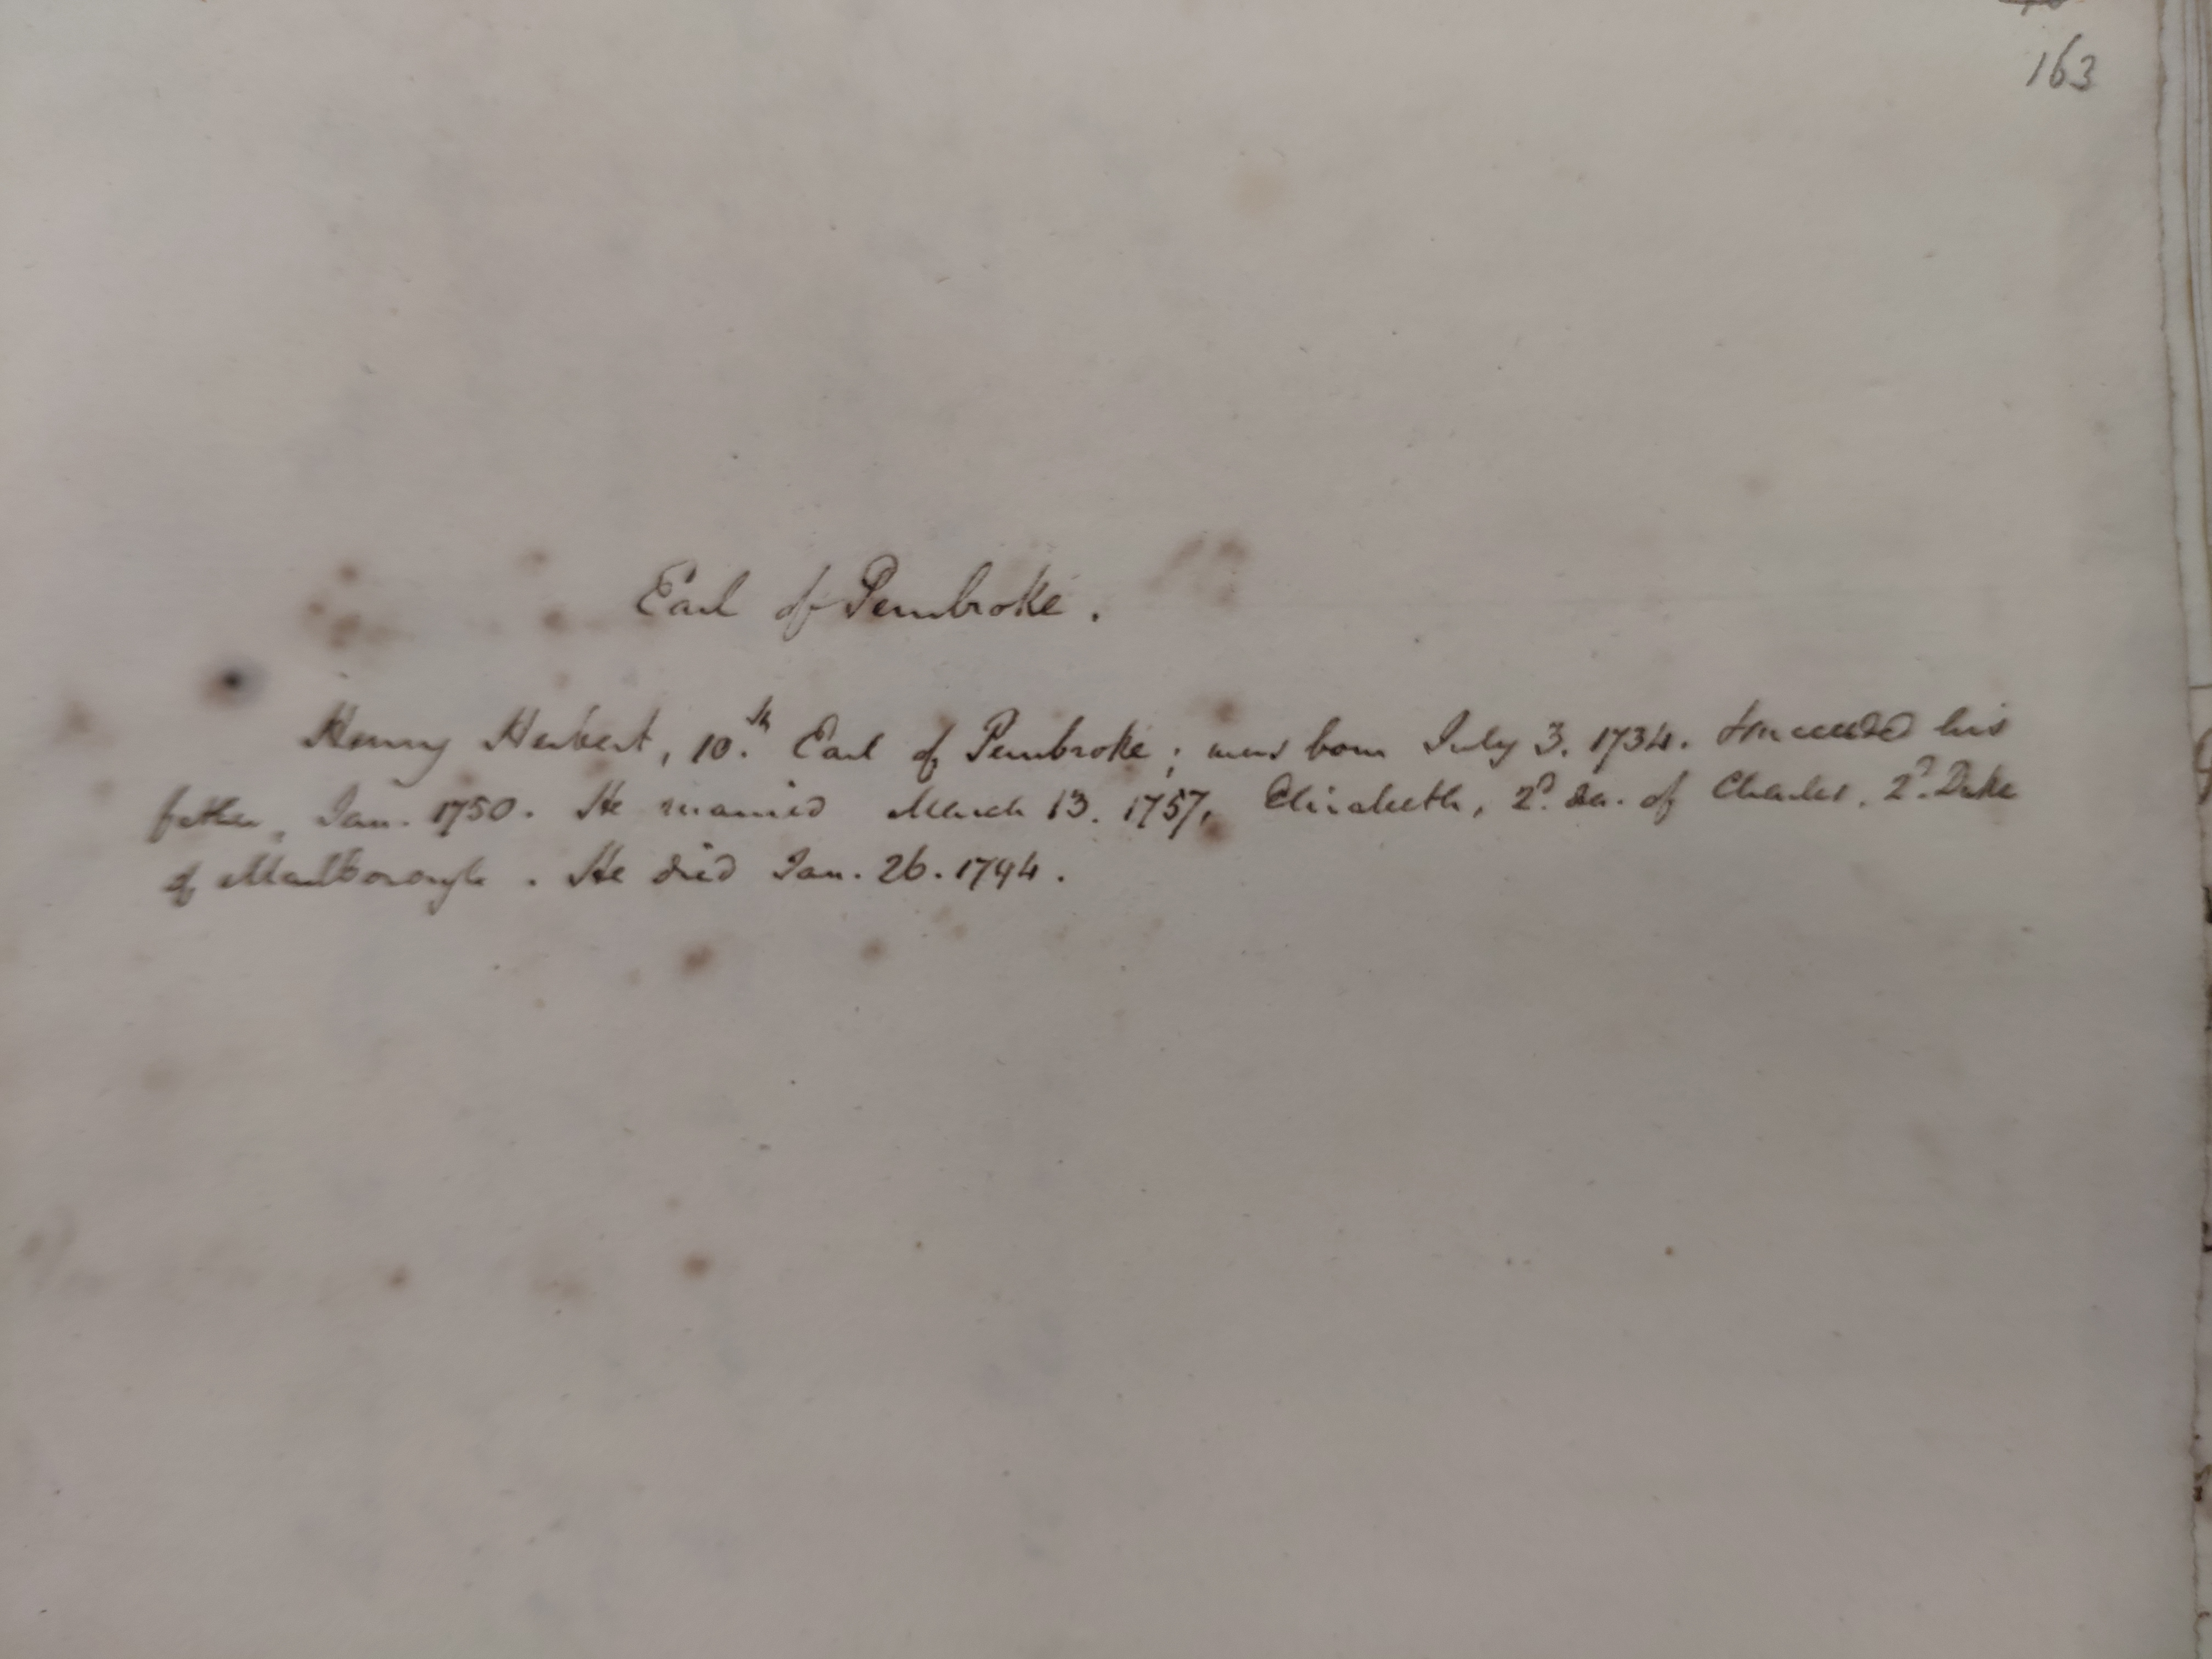 163
Earl of Pembroke.
Henry Herbert, 10.th Earl of Pembroke; was born July 3. 1734. Succeeded his
father, Jan. 1750. He married March 13. 1757, Elizabeth, 2d. da. of Charles, 2d. Duke
of Marlborough. He died Jan. 26. 1794.